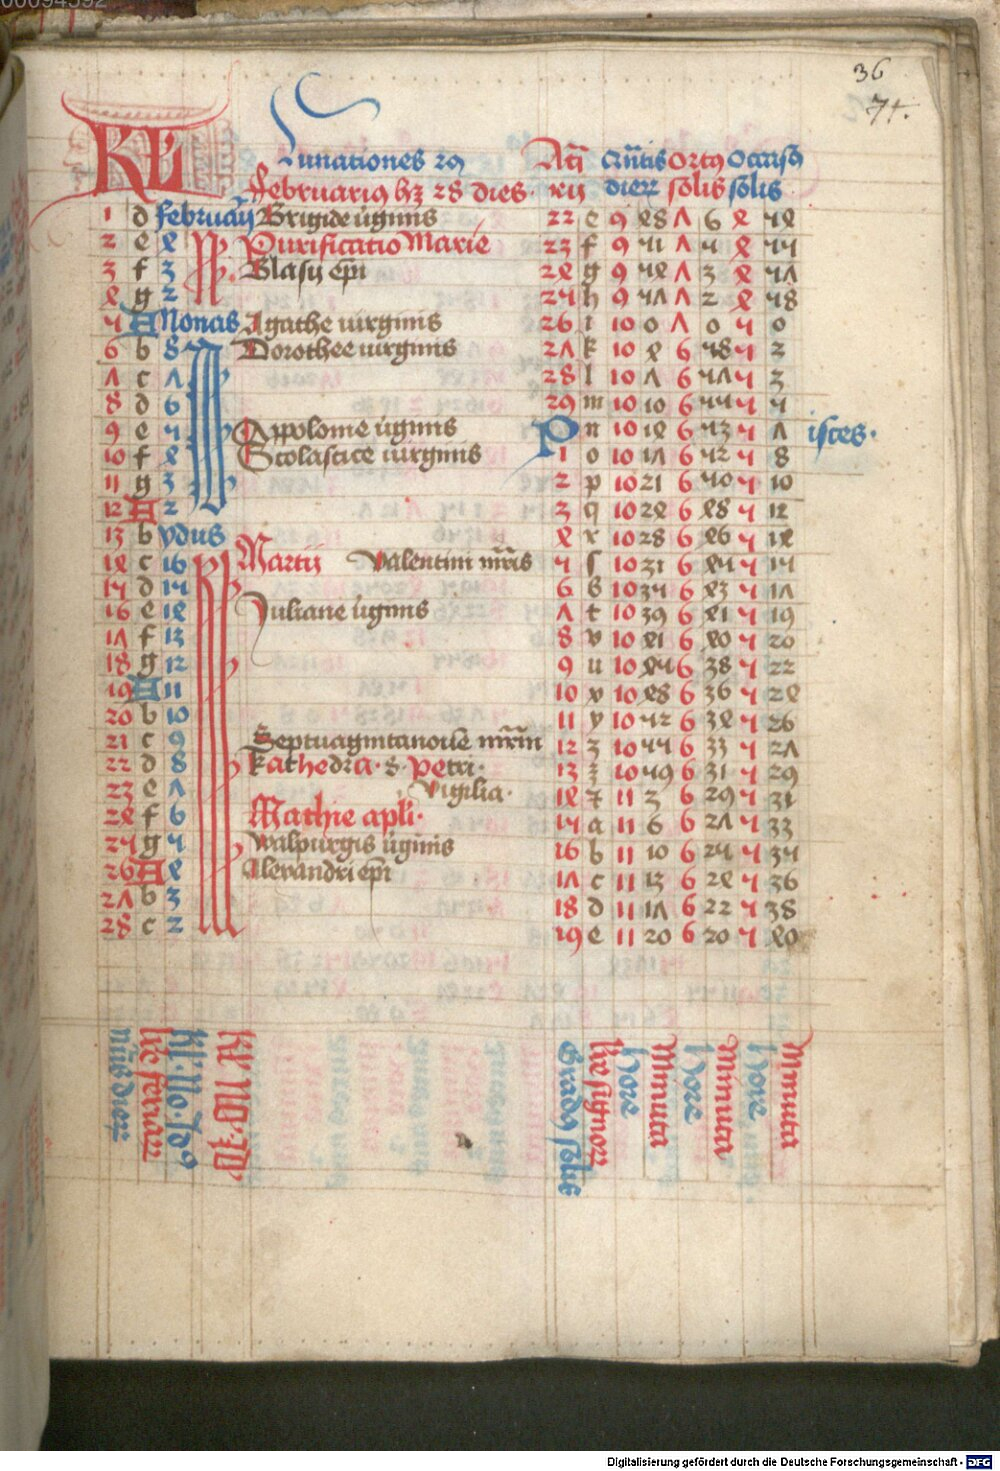 00094592
36
71.
KL Lunationes 29 Aũ Qũtis Ortꝰ Occasꝰ
februariꝰ hꝫ 28 dies. rij dierꝝ solis solis
1 d februarij Brigide ũginis 22 e 9 48 7 6 4 54
2 e 4 Purificatio Marie 23 f 9 51 7 5 4 55
3 f 3 Blasij ep̃i 24 g 9 54 7 3 4 57
4 g 2 25 h 9 57 7 2 4 58
5 A Nonas Agathe uirginis 26 i 10 0 7 0 5 0
6 b 8 Dorothee uirginis 27 k 10 4 6 58 5 2
7 c 7 28 l 10 7 6 57 5 3
8 d 6 29 m 10 10 6 55 5 5
9 e 5 Appolonie ũginis P n 10 14 6 53 5 7 isces.
10 f 4 Scolastice uirginis 1 o 10 17 6 52 5 8
11 g 3 2 p 10 21 6 50 5 10
12 A 2 3 q 10 24 6 48 5 12
13 b ydus 4 r 10 28 6 46 5 14
14 c 16 Martij Valentini mr̃is 5 s 10 31 6 45 5 15
15 d 15 6 s 10 35 6 43 5 17
16 e 14 Juliane ũginis 7 t 10 39 6 41 5 19
17 f 13 8 v 10 41 6 40 5 20
18 g 12 9 u 10 45 6 38 5 22
19 A 11 10 x 10 48 6 36 5 24
20 b 10 11 y 10 52 6 34 5 26
21 c 9 Septuagintanoue mr̃im 12 z 10 55 6 33 5 27
22 d 8 kathedra. s. petri. 13 ʒ 10 59 6 31 5 29
23 e 7 Vigilia. 14 7 11 3 6 29 5 31
24 f 6 Mathie apl̃i. 15 a 11 6 6 27 5 33
25 g 5 walpurgis ũginis 16 b 11 10 6 25 5 35
26 A 4 Alexandri ep̃i 17 c 11 13 6 24 5 36
27 b 3 18 d 11 17 6 22 5 38
28 c 2 19 e 11 20 6 20 5 40
Nũs dierꝝ
lr̃e feriarꝝ
kl. no. ydꝰ
kl. no. yd.
Gradꝰ solis
lr̃e signorꝝ
hore
Minuta
hore
Minuta
hore
Minuta
Digitalisierung gefördert durch die Deutsche Forschungsgemeinschaft - DFG